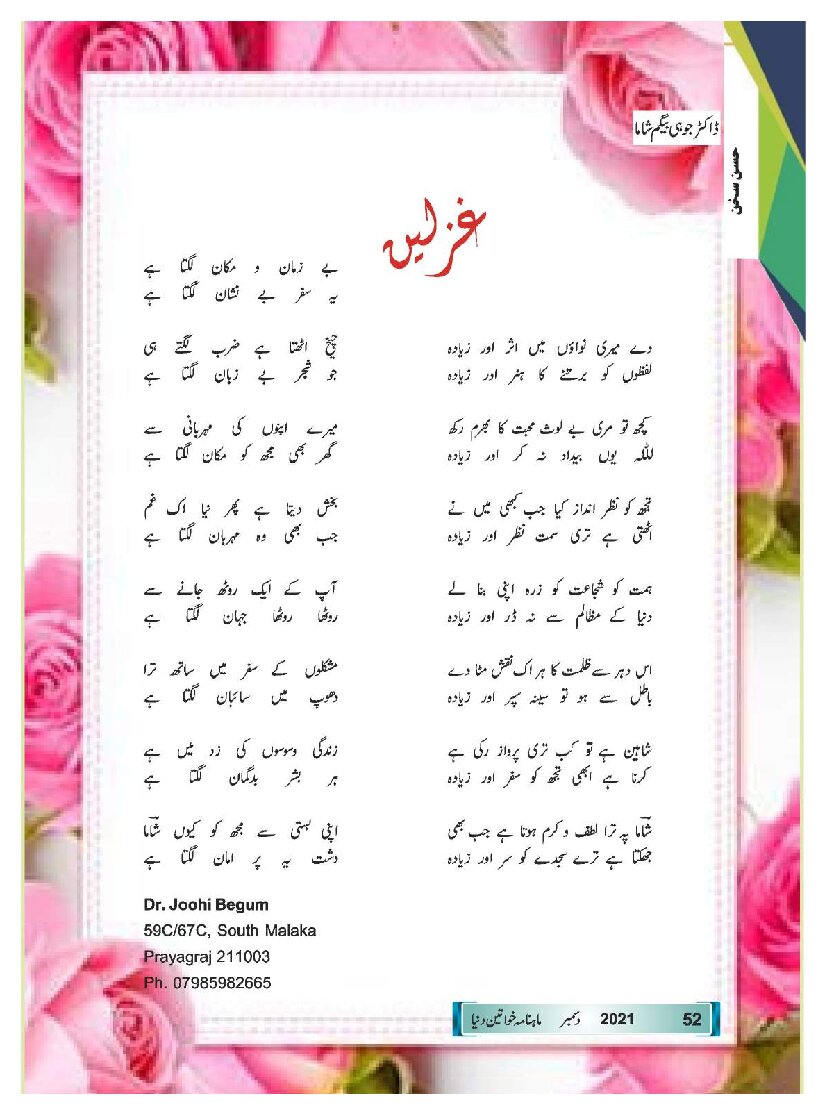 ڈاکٹر جوہی بیگم شاما
حسن سخن
غزلیں
دے میری نواؤں میں اثر اور زیادہ
لفظوں کو برتنے کا ہنر اور زیادہ
کچھ تو مری بے لوث محبت کا بھرم رکھ
للٰلہ یوں بیداد نہ کر اور زیادہ
تجھ کو نظر انداز کیا جب کبھی میں نے
اٹھتی ہے تری سمت نظر اور زیادہ
ہمت کو شجاعت کو زرہ اپنی بنا لے
دنیا کے مظالم سے نہ ڈر اور زیادہ
اس دہر سے ظلمت کا ہر اک نقش مٹا دے
باطل سے ہو تو سینہ سپر اور زیادہ
شاہین ہے تو کب تری پرواز رکی ہے
کرنا ہے ابھی تجھ کو سفر اور زیادہ
شاما پہ ترا لطف و کرم ہوتا ہے جب بھی
جھکتا ہے ترے سجدے کو سر اور زیادہ
بے زمان و مکان لگتا ہے
یہ سفر بے نشان لگتا ہے
چیخ اٹھتا ہے ضرب لگتے ہی
جو شجر بے زبان لگتا ہے
میرے اپنوں کی مہربانی سے
گھر بھی مجھ کو مکان لگتا ہے
بخش دیتا ہے پھر نیا اک غم
جب بھی وہ مہربان لگتا ہے
آپ کے ایک روٹھ جانے سے
روٹھا روٹھا جہان لگتا ہے
مشکلوں کے سفر میں ساتھ ترا
دھوپ میں سائبان لگتا ہے
زندگی وسوسوں کی زد میں ہے
ہر بشر بدگمان لگتا ہے
اپنی بستی سے مجھ کو کیوں شاما
دشت یہ پر امان لگتا ہے
Dr. Joohi Begum
59C/67C, South Malaka
Prayagraj 211003
Ph. 07985982665
ماہنامہ خواتین دنیا دسمبر 2021 52